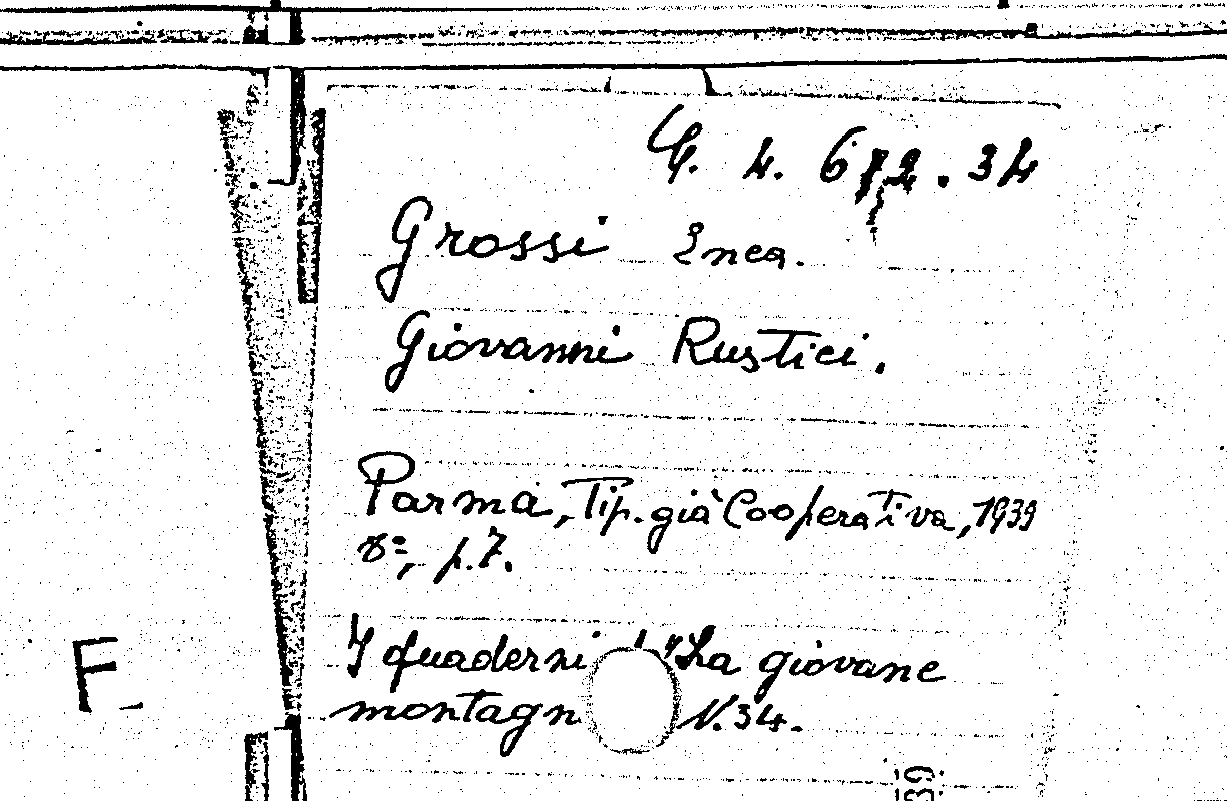 G. 4. 672.34
Grossi Enea.
Giovanni Rustici.
Parma, Tip. già Cooperativa, 1939
8º, p. 7.
I quaderni "La giovane
montagn N. 34.
F